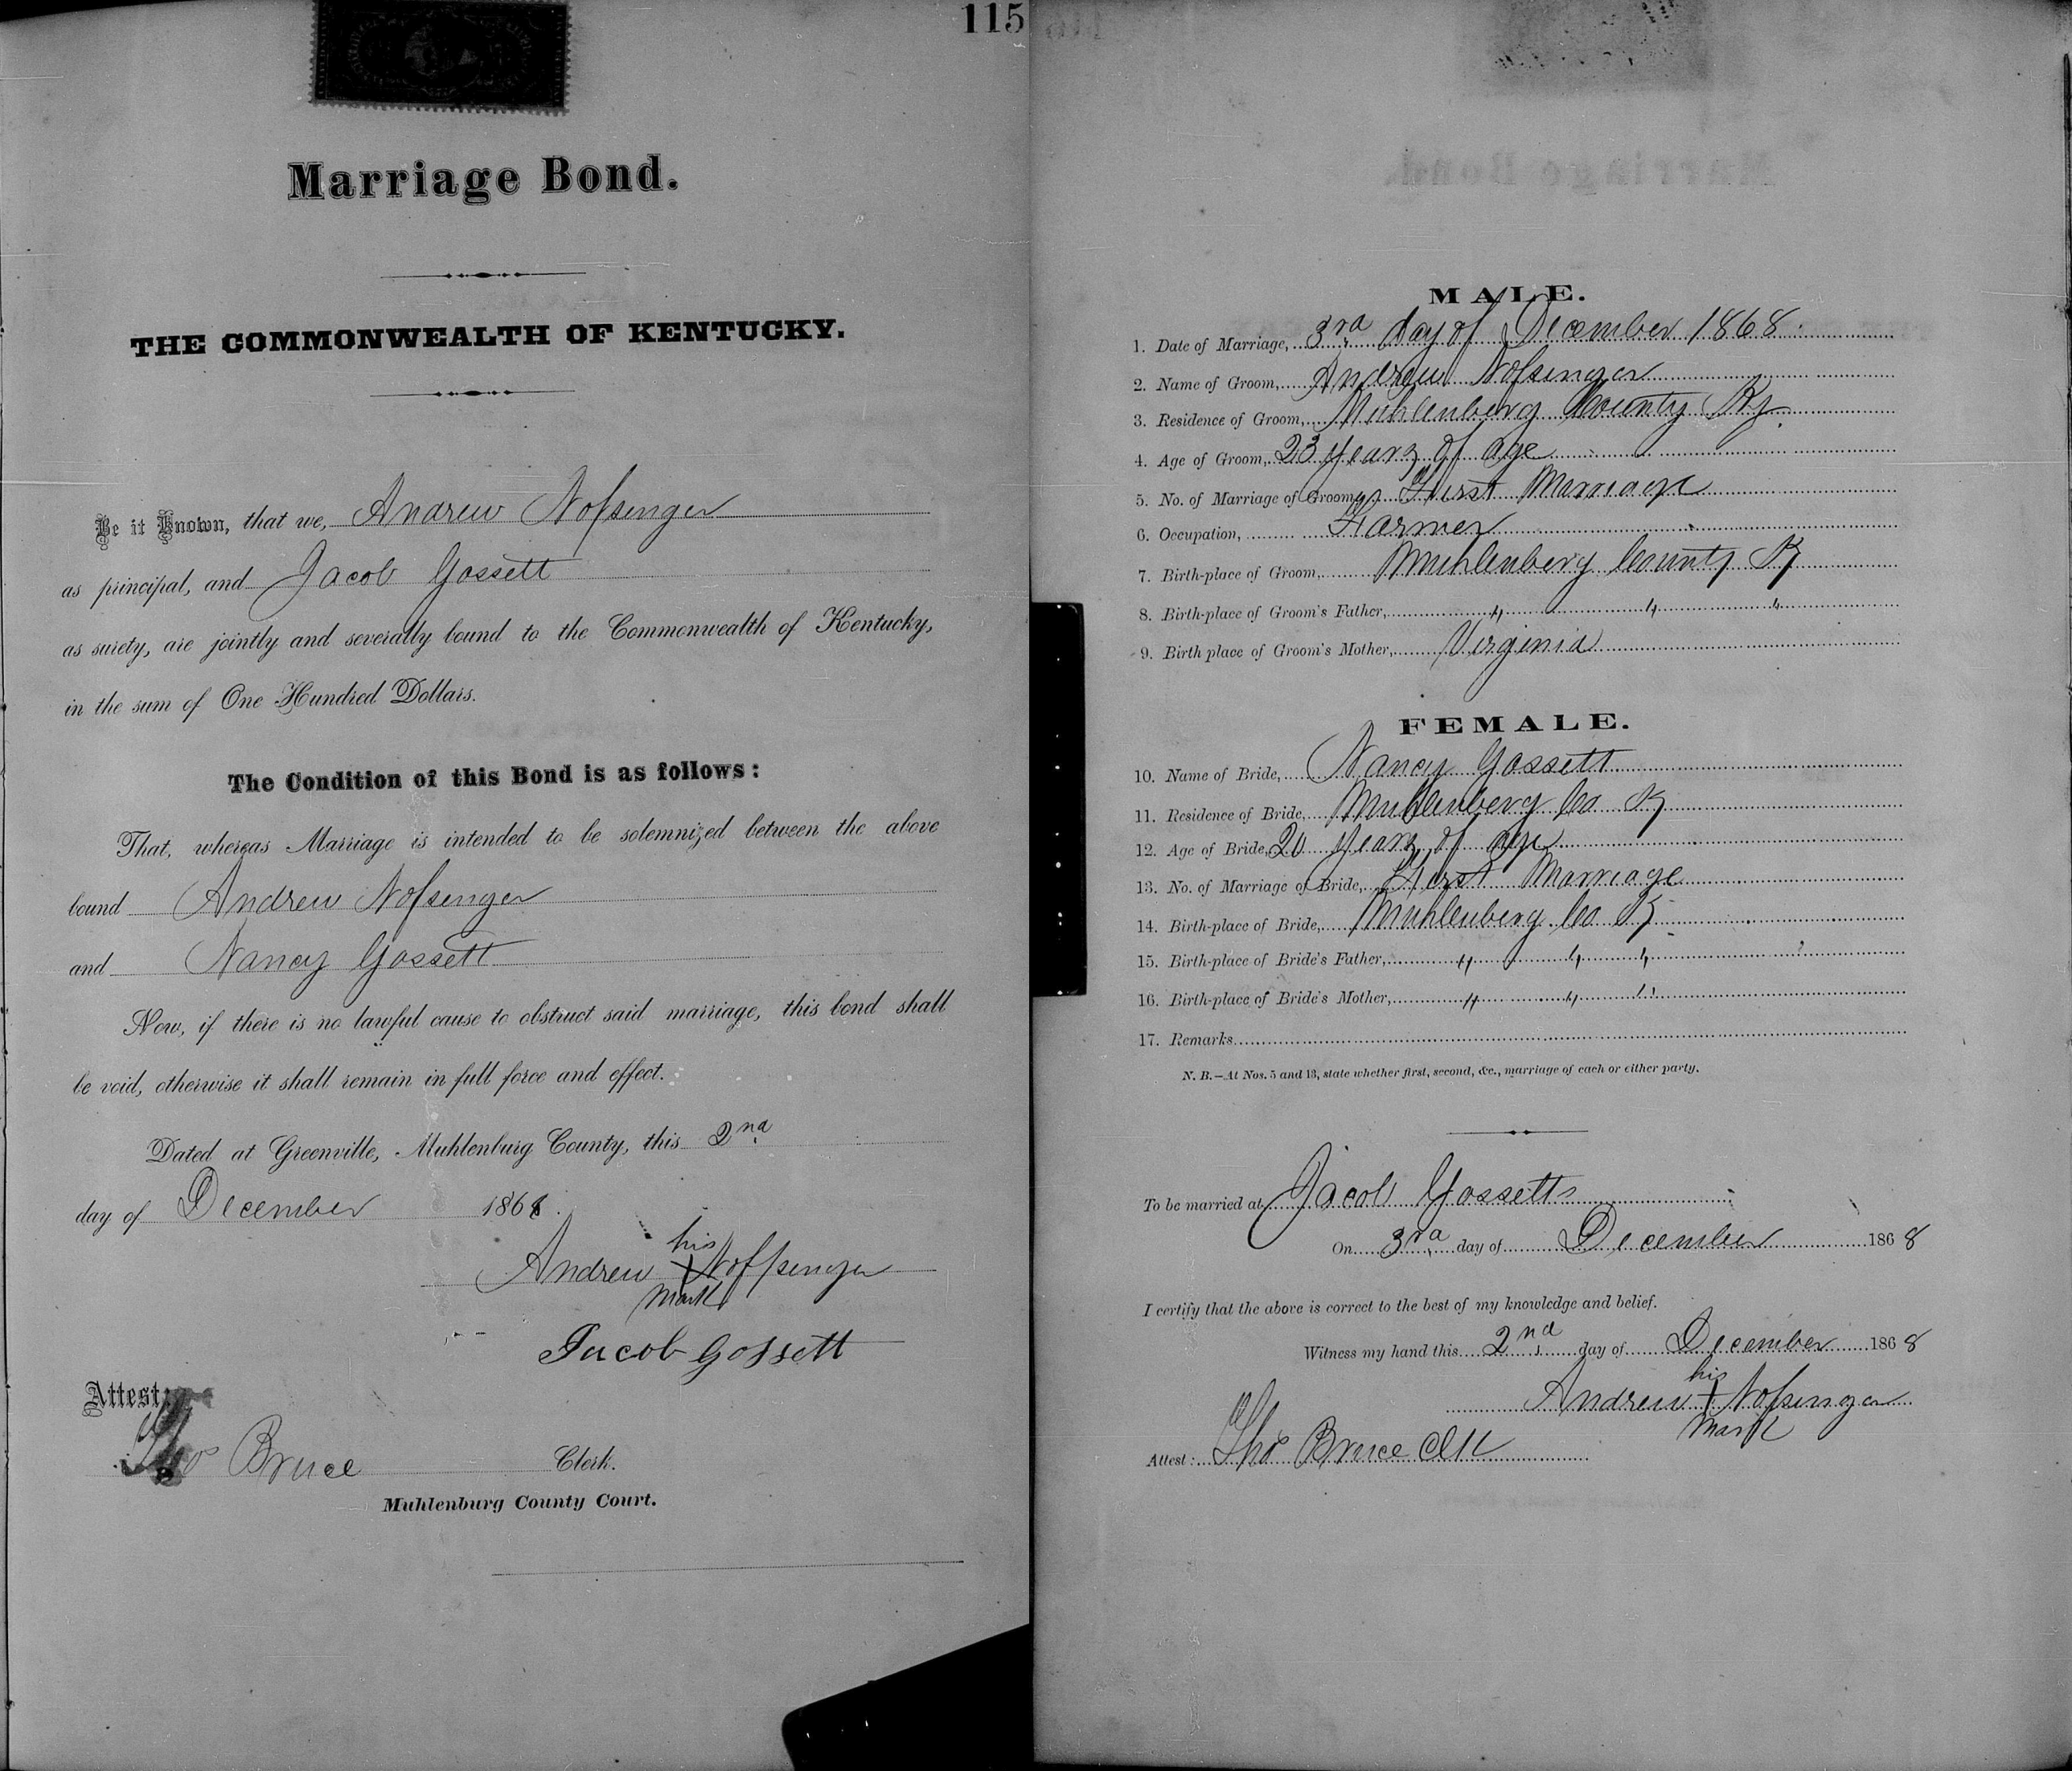 115
Marriage Bond.
THE COMMONWEALTH OF KENTUCKY.
Be it Known, that we, Andrew Nofsinger
as principal, and Jacob Gossett
as surety, are jointly and severally bound to the Commonwealth of Kentucky,
in the sum of One Hundred Dollars.
The Condition of this Bond is as follows:
That, whereas Marriage is intended to be solemnized between the above
bound Andrew Nofsinger
and Nancy Gossett
Now, if there is no lawful cause to obstruct said marriage, this bond shall
be void, otherwise it shall remain in full force and effect.
Dated at Greenville, Muhlenburg County, this 2nd
day of December 1868.
his
Andrew X Noffsinger
mark
Jacob Gossett
Attest:
Tho Bruce Clerk.
Muhlenburg County Court.
MALE.
1. Date of Marriage, 3rd day of December 1868.
2. Name of Groom, Andrew Nofsinger
3. Residence of Groom, Muhlenberg County Ky.
4. Age of Groom, 23 years of age
5. No. of Marriage of Groom, First Marriage
6. Occupation, Farmer
7. Birth-place of Groom, Muhlenberg County Ky
8. Birth-place of Groom's Father, " " "
9. Birth place of Groom's Mother, Virginia
FEMALE.
10. Name of Bride, Nancy Gossett
11. Residence of Bride, Muhlenberg Co Ky
12. Age of Bride, 20 years of age
13. No. of Marriage of Bride, First Marriage
14. Birth-place of Bride, Muhlenberg Co Ky
15. Birth-place of Bride's Father, " " "
16. Birth-place of Bride's Mother, " " "
17. Remarks
N. B.—At Nos. 5 and 13, state whether first, second, &c., marriage of each or either party.
To be married at Jacob Gossetts
On 3rd day of December 1868
I certify that the above is correct to the best of my knowledge and belief.
Witness my hand this 2nd day of December 1868
his
Andrew X Nofsinger
mark
Attest: Tho Bruce Clk